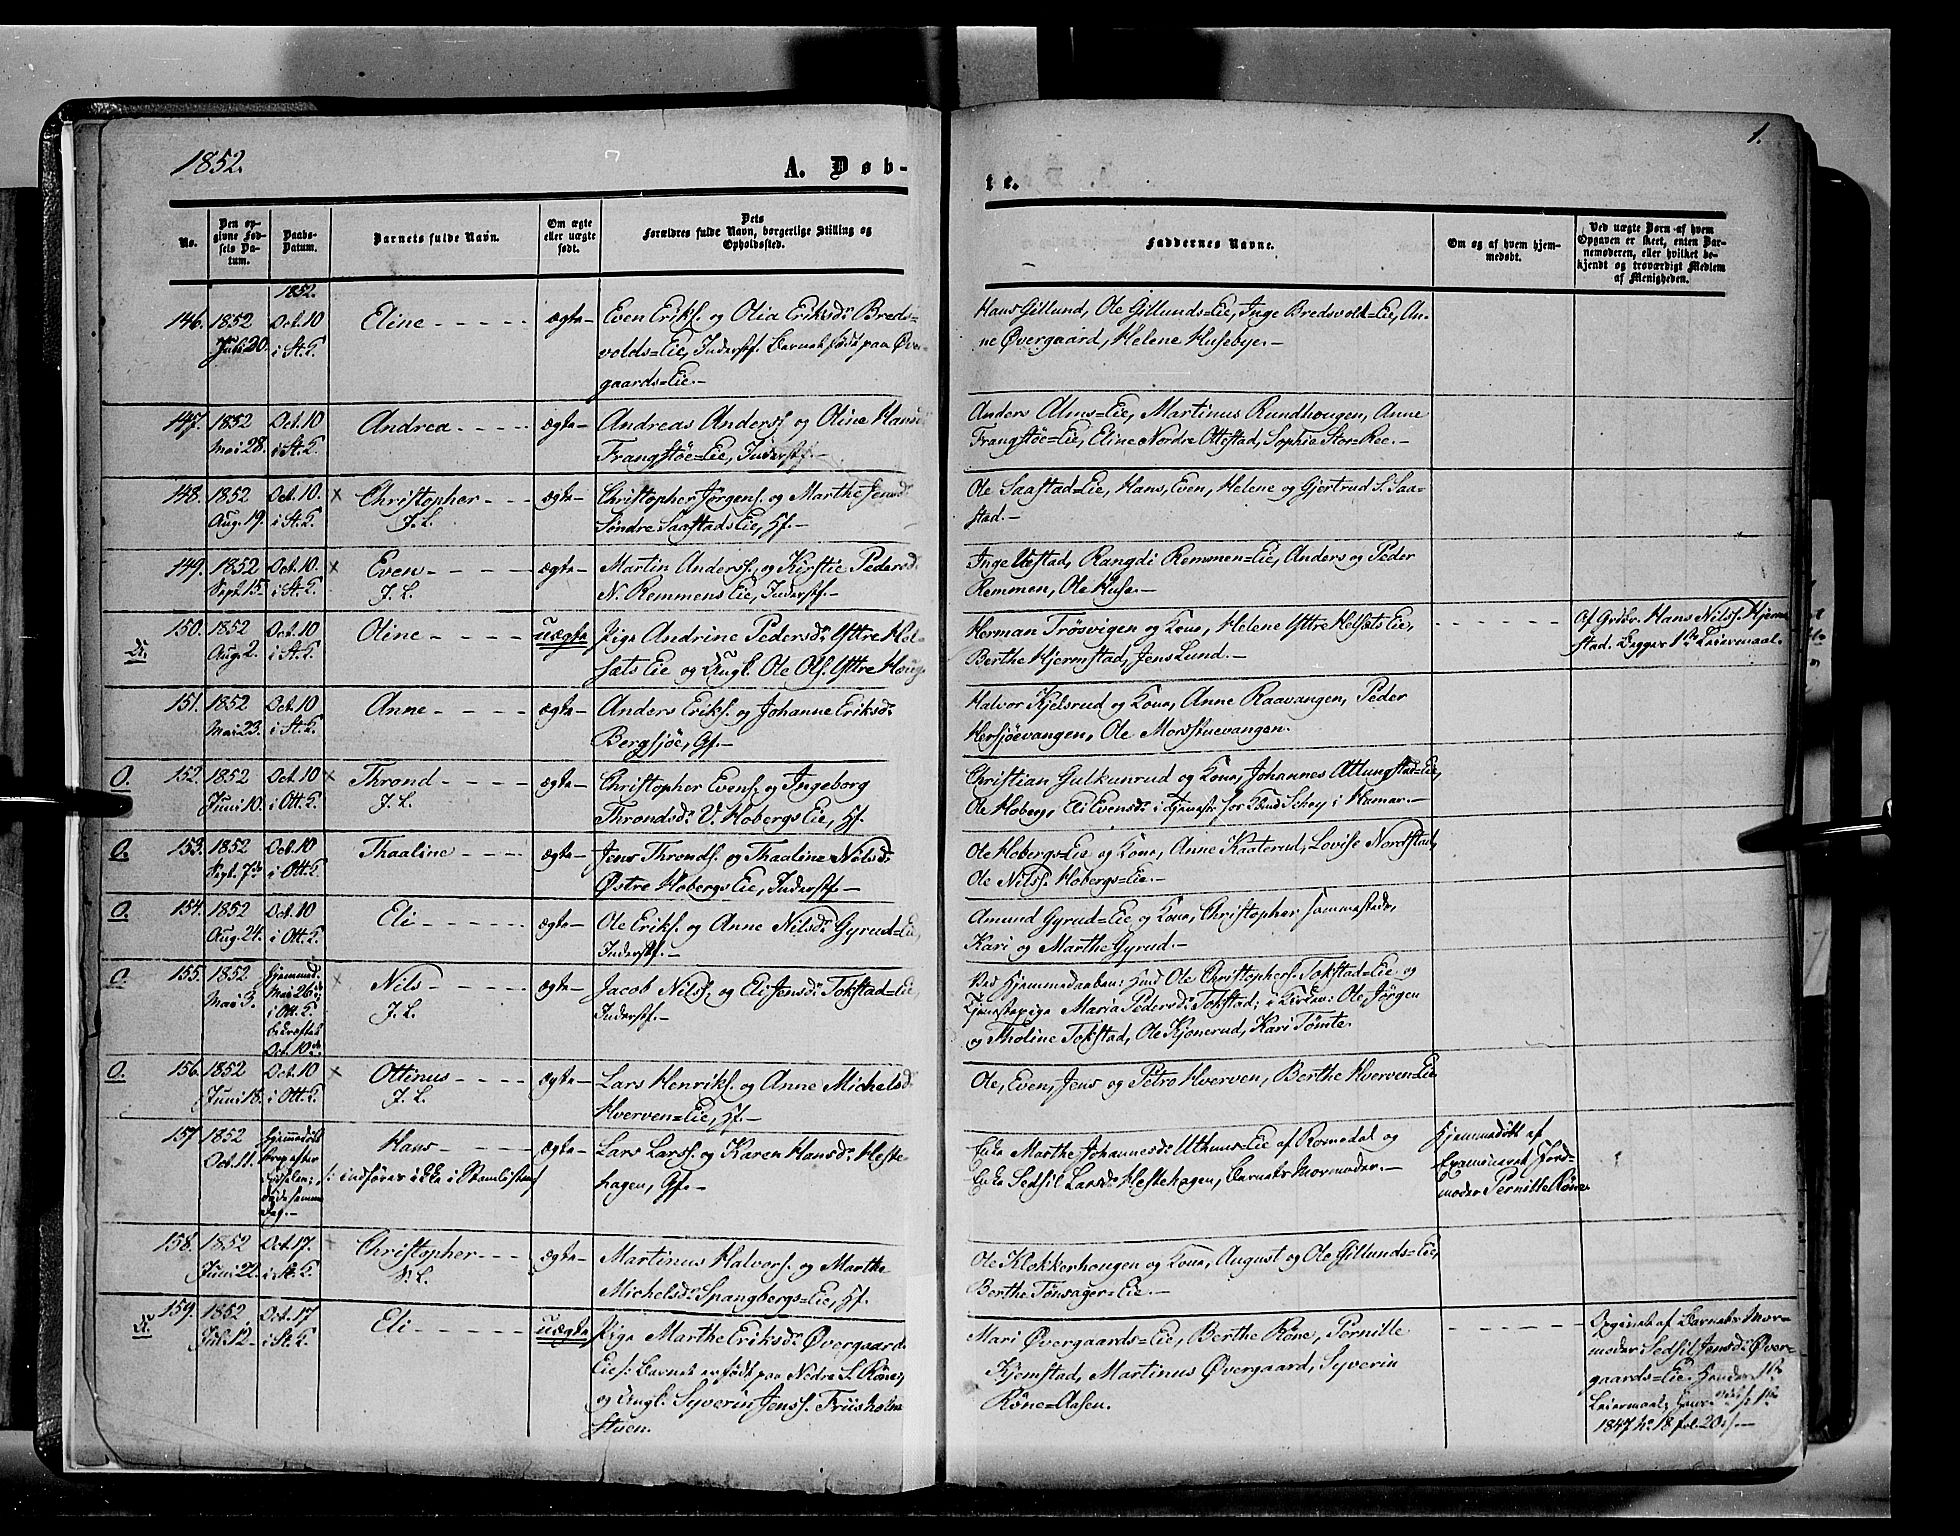 1852.
A. Døb-
te.
1.
No.
Den op-
givne Fød-
sels Da-
tum.
Daabs-
Datum.
Barnets fulde Navn.
Om ægte
eller uægte
født.
Dets
Forældres fulde Navn, borgerlige Stilling og
Opholdssted.
Faddernes Navne.
Om og af hvem hjem-
medøbt.
Ved uægte Børn af hvem
Opgaven er skeet, enten Bar-
nemoderen, eller hvilket be-
kjendt og troværdigt Medlem
af Menigheden.
1852.
146. 1852 Oct. 10 Eline - - - - - ægte - Even Eriks. og Olia Eriksd. Breds=
Juli 20. i St. K. volds=Eie, Inderstf. Barnet født paa Øver-
gaards=Eie. -
Hans Gillund, Ole Gillunds=Eie, Inge Bredsvold=Eie, An-
ne Øvergaard, Helene Husebye. -
147. 1852 Oct. 10 Andrea - - - - ægte - Andreas Anders. og Oline Hansd.
Mai 28. i St. K. Frangstøe=Eie, Inderstf. -
Anders Alms=Eie, Martinus Rundhougen, Anne
Frangstøe=Eie, Eline Nordre Ottestad, Sophie Stor=Ree. -
148. 1852 Oct. 10. x Christopher - - - ægte - Christopher Jørgens. og Marthe Jensd.
Aug. 19. i St. K. J. L. Søndre Saastads Eie, Hf. -
Ole Saastad=Eie, Hans, Even, Helene og Gjertrud S. Saa-
stad. -
149. 1852 Oct. 10. x Even - - - - ægte - Martin Anders. og Kirstie Pedersd.
Sept. 15 - i St. K. J. L. N. Remmens Eie, Inderstf. -
Inge Uestad, Rangdi Remmen=Eie, Anders og Peder
Remmen, Ole Huse. -
150. 1852 Oct. 10 Oline - - - - uægte Pige Andrine Pedersd. Yttre Hel-
Aug. 2. i St. K. sæts Eie og Ungk. Ole Ols. Yttre Houg.
Herman Trøsvigen og Kone, Helene Yttre Helsæts Eie,
Berthe Hjermstad, Jens Lund. -
- - - - - -
Af Grdbr. Hans Nilss. Hjerm-
stad. Begges 1ste Leiermaal.
151. 1852 Oct. 10 Anne - - - - ægte - Anders Eriks. og Johanne Eriksd.
Mai 23. i St. K. Bergsjøe, Gf. -
Halvor Kjelsrud og Kone, Anne Raavangen, Peder
Hersjøevangen, Ole Morsstuevangen.
O. 152. 1852 Oct. 10 x Thrond - - - - ægte - Christopher Evens. og Ingeborg
Juni 10. i Ott. K. J. L. Throndsd. V. Hobergs Eie, Hf.
Christian Gulkunrud og Kone, Johannes Atlungstad=Eie,
Ole Hoberg, Eli Evensd. i Tjeneste for Schey i Hamar. -
O. 153. 1852 Oct. 10 Thaaline - - - - ægte - Jens Thronds. og Thaaline Nilsd.
Sept. 7de i Ott. K. Østre Hobergs Eie, Inderstf. -
Ole Hobergs=Eie og Kone, Anne Kaaterud, Lovise Nordstad,
Ole Nilss. Hobergs=Eie. -
O. 154. 1852 Oct. 10 Eli - - - - - ægte - Ole Eriks. og Anne Nilsd. Gyrud=Eie,
Aug. 24. i Ott. K. Inderstf. -
Amund Gyrud=Eie og Kone, Christopher sammesteds,
Kari og Marthe Gyrud. -
O. 155. 1852 Hjemmed. x Nils - - - - ægte - Jacob Nilss. og Eli Jensd. Tokstad=Eie,
Mai 3. Mai 26de, J. L. Inderstf. -
i Ott. K.
bekræftet
Oct. 10de
Ved Hjemmedaaben: Ole Christophers. Tokstad=Eie og
Tjenestepige Maria Pedersd. Tokstad; i Kirken: Ole, Jørgen
og Tholine Tokstad, Ole Kjonerud, Kari Tømte.
O. 156. 1852 Oct. 10 x Ottinus - - - - ægte - Lars Henriks. og Anne Michelsd.
Juni 18. i Ott. K. J. L. Hverven=Eie, Hf. -
Ole, Even, Jens og Petro Hverven, Berthe Hverven=Eie
157. 1852 Hjemmedøbt Hans - - - - ægte - Lars Larss. og Karen Hansd. Heste-
Oct. 11. strax efter /: indføres ikke i Stamlisten/ hagen, Gf. -
Fødselen;
døde samme
Dag. -
Enke Marthe Johannesd. Uthuus=Eie af Romedal og
Enke Sedsil Larsd. Hestehagen, Barnets Mormoder. -
Hjemmedøbt af
Examineret Jord-
moder Pernille Røne.
158. 1852 Oct. 17. Christopher - - - ægte - Martinus Halvors. og Marthe
Juni 22. i St. K. J. L. Michelsd. Spangbergs=Eie, Hf.
Ole Klokkerhougen og Kone, August og Ole Gillunds=Eie,
Berthe Tønsager=Eie. -
159. 1852, Oct. 17 Eli - - - - - uægte Pige Marthe Eriksd. Øvergaards
Juli 12. - i St. K. Eie /: Barnet er født paa Nedre S. Røne/,
og Ungk. Syverin Jenss. Friisholm
stuen.
Mari Øvergaards=Eie, Berthe Røne, Pernille
Kjemstad, Martinus Øvergaard, Syverin
Røne=Aasen.
- - - - - -
Opgivet af Barnets Mor-
moder Sedsil Jensd. Øver-
gaards=Eie. Hendes 1ste
Leiermaal; hans
1847 No. 18 fol. 20. -